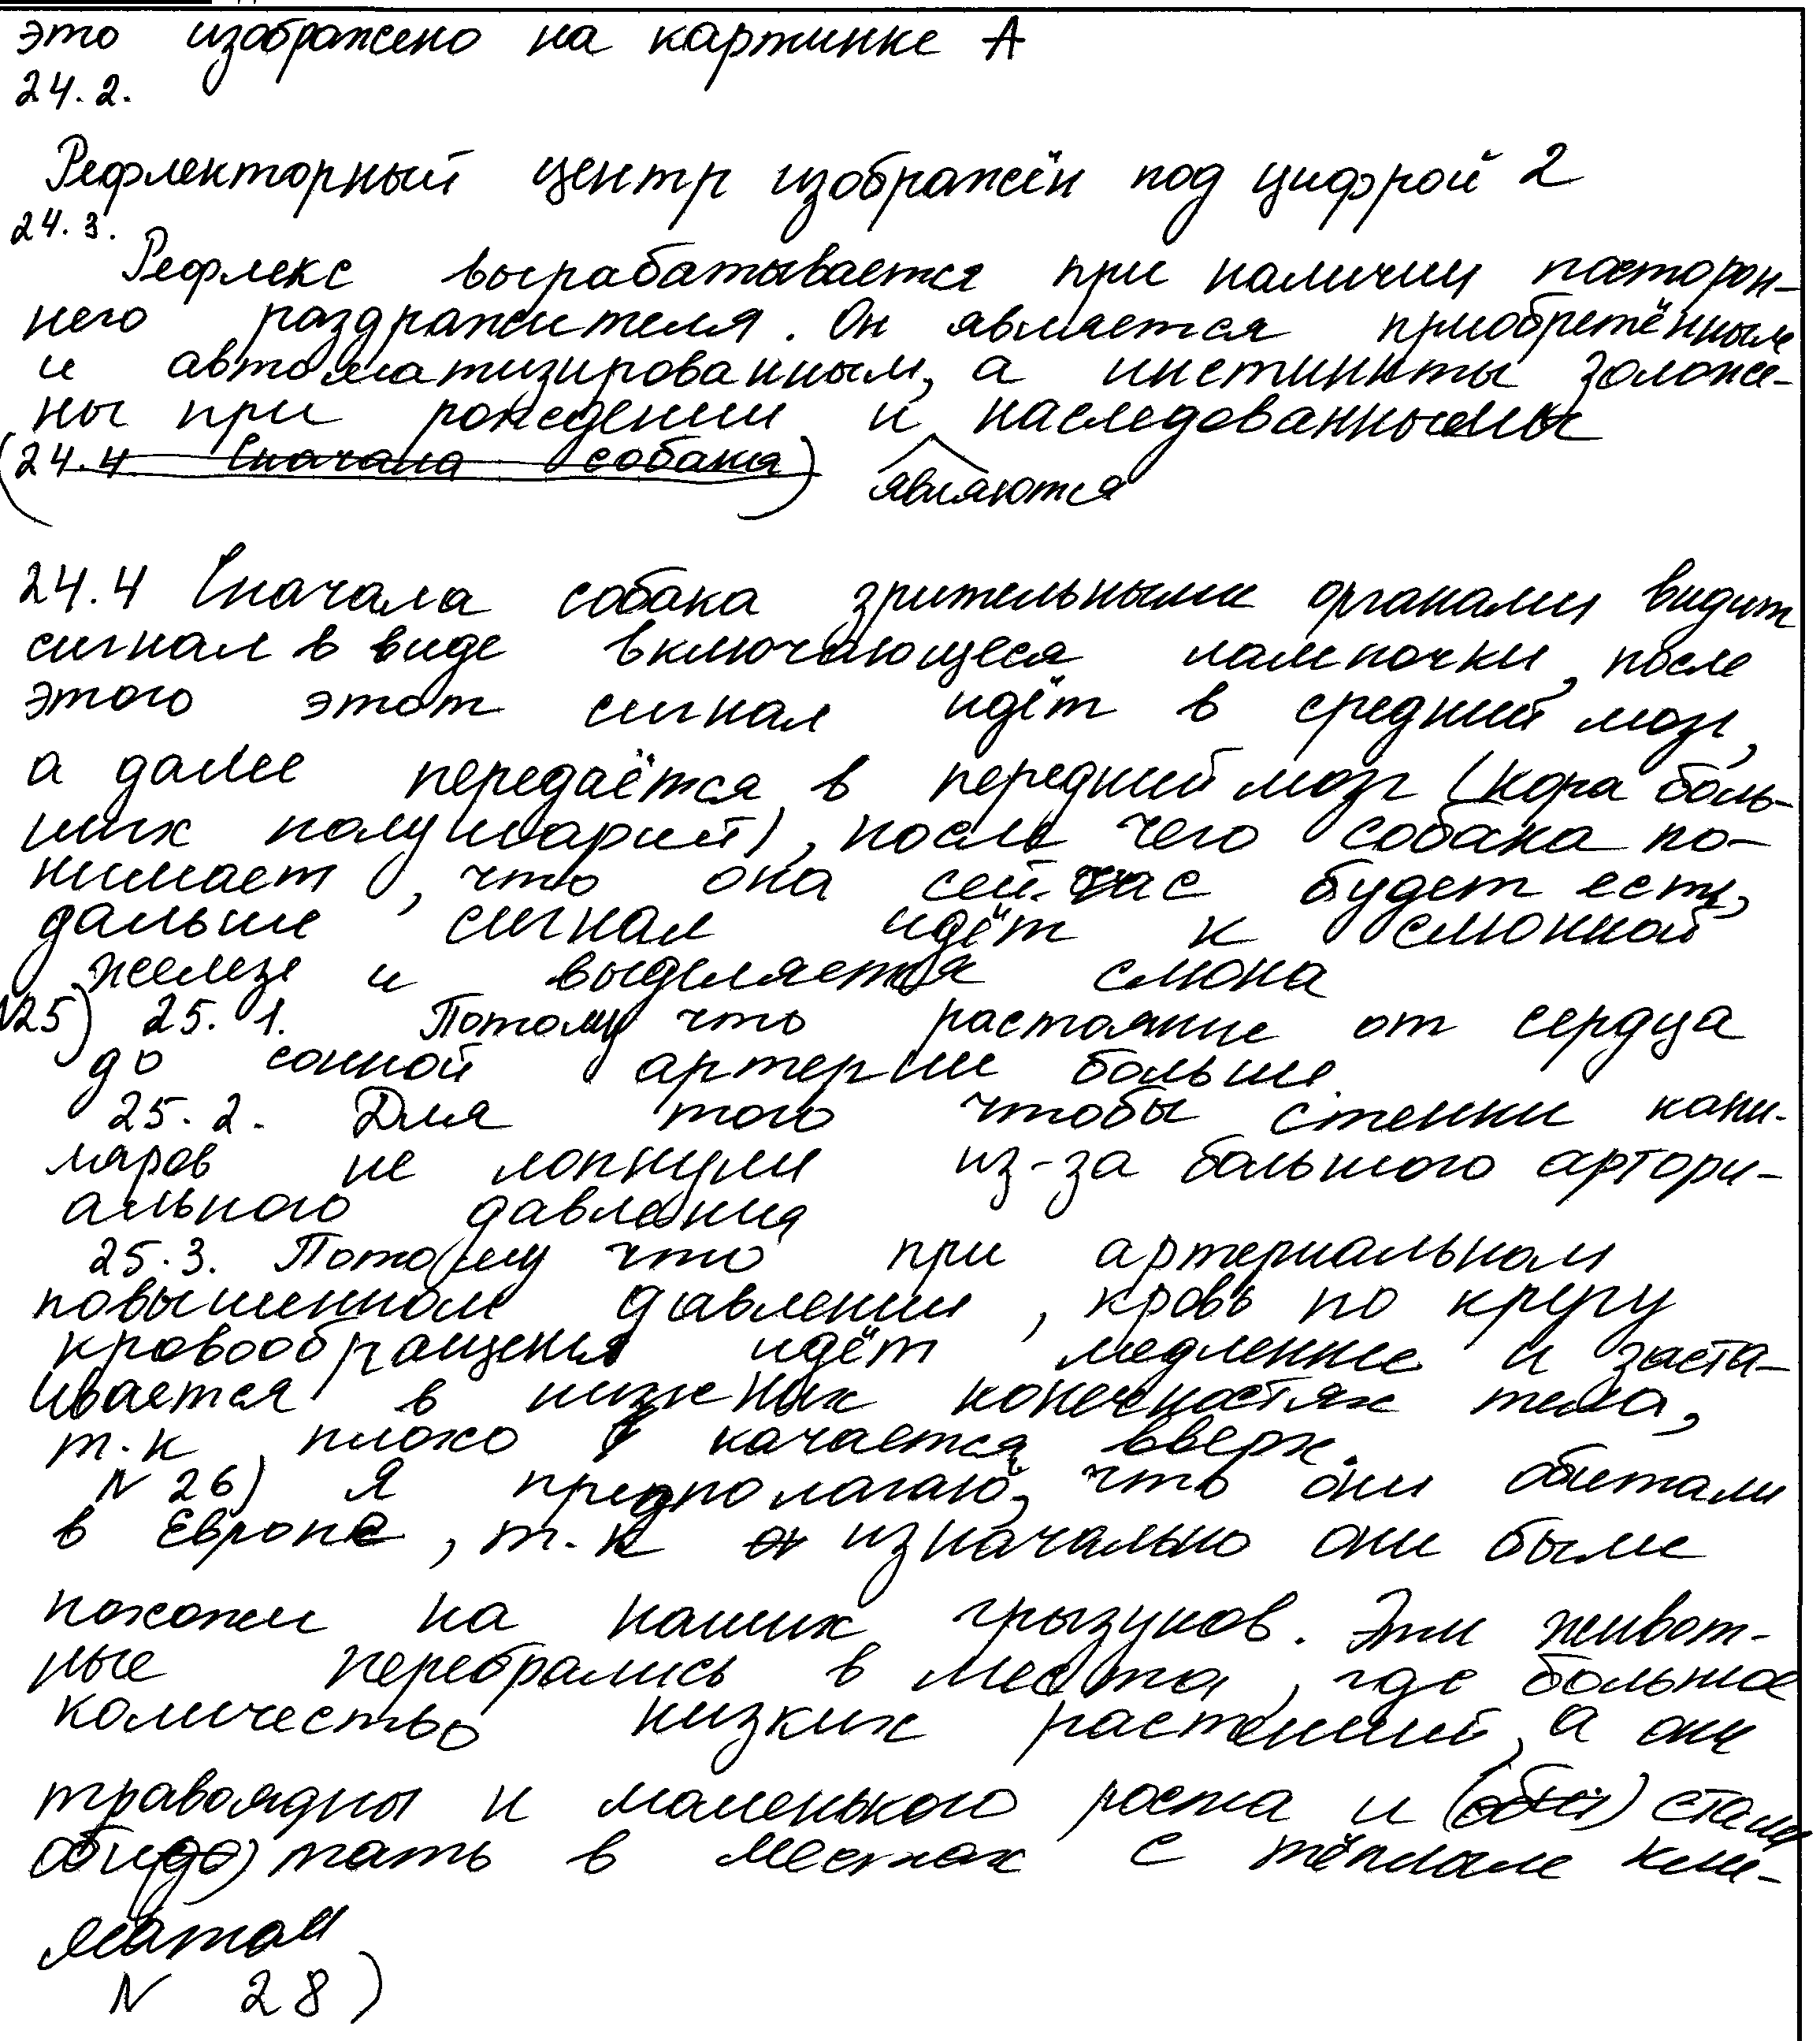 это изображено на картинке А
24.2.
Рефлекторный центр изображён под цифрой 2
24.3.
Рефлекс вырабатывается при наличии посторон-
него раздражителя. Он является приобретённым
и автоматизированным, а инстинкты заложе-
ны при рождении и наследованными
(24.4 Сначала собака) являются
24.4 Сначала собака зрительными органами видит
сигнал в виде включающееся лампочки, после
этого этот сигнал идёт в средний мозг,
а далее передаётся в передний мозг (кора боль-
ших полушарий), после чего собака по-
нимает, что она сейчас будет есть,
дальше сигнал идёт к слюнной
железе и выделяется слюна
№25) 25.1. Потому что растояние от сердца
до сонной артерии больше.
25.2. Для того чтобы стенки капи-
ляров не лопнули из-за большого артори-
ального давления
25.3. Потому что при артериальном
повышенном давлении, кровь по кругу
кровообращения идёт медленнее и заста-
ивается в нижних конечностях тела,
т.к плохо качается вверх.
N 26) Я предполагаю, что они обитали
в Европе, т.к изначально они были
похожи на наших грызунов. Эти живот-
ные перебрались в места, где большое
количество низких растений, а они
травоядны и маленького роста и (оби) стали
обитать в местах с тёплым кли-
матом
N 28)